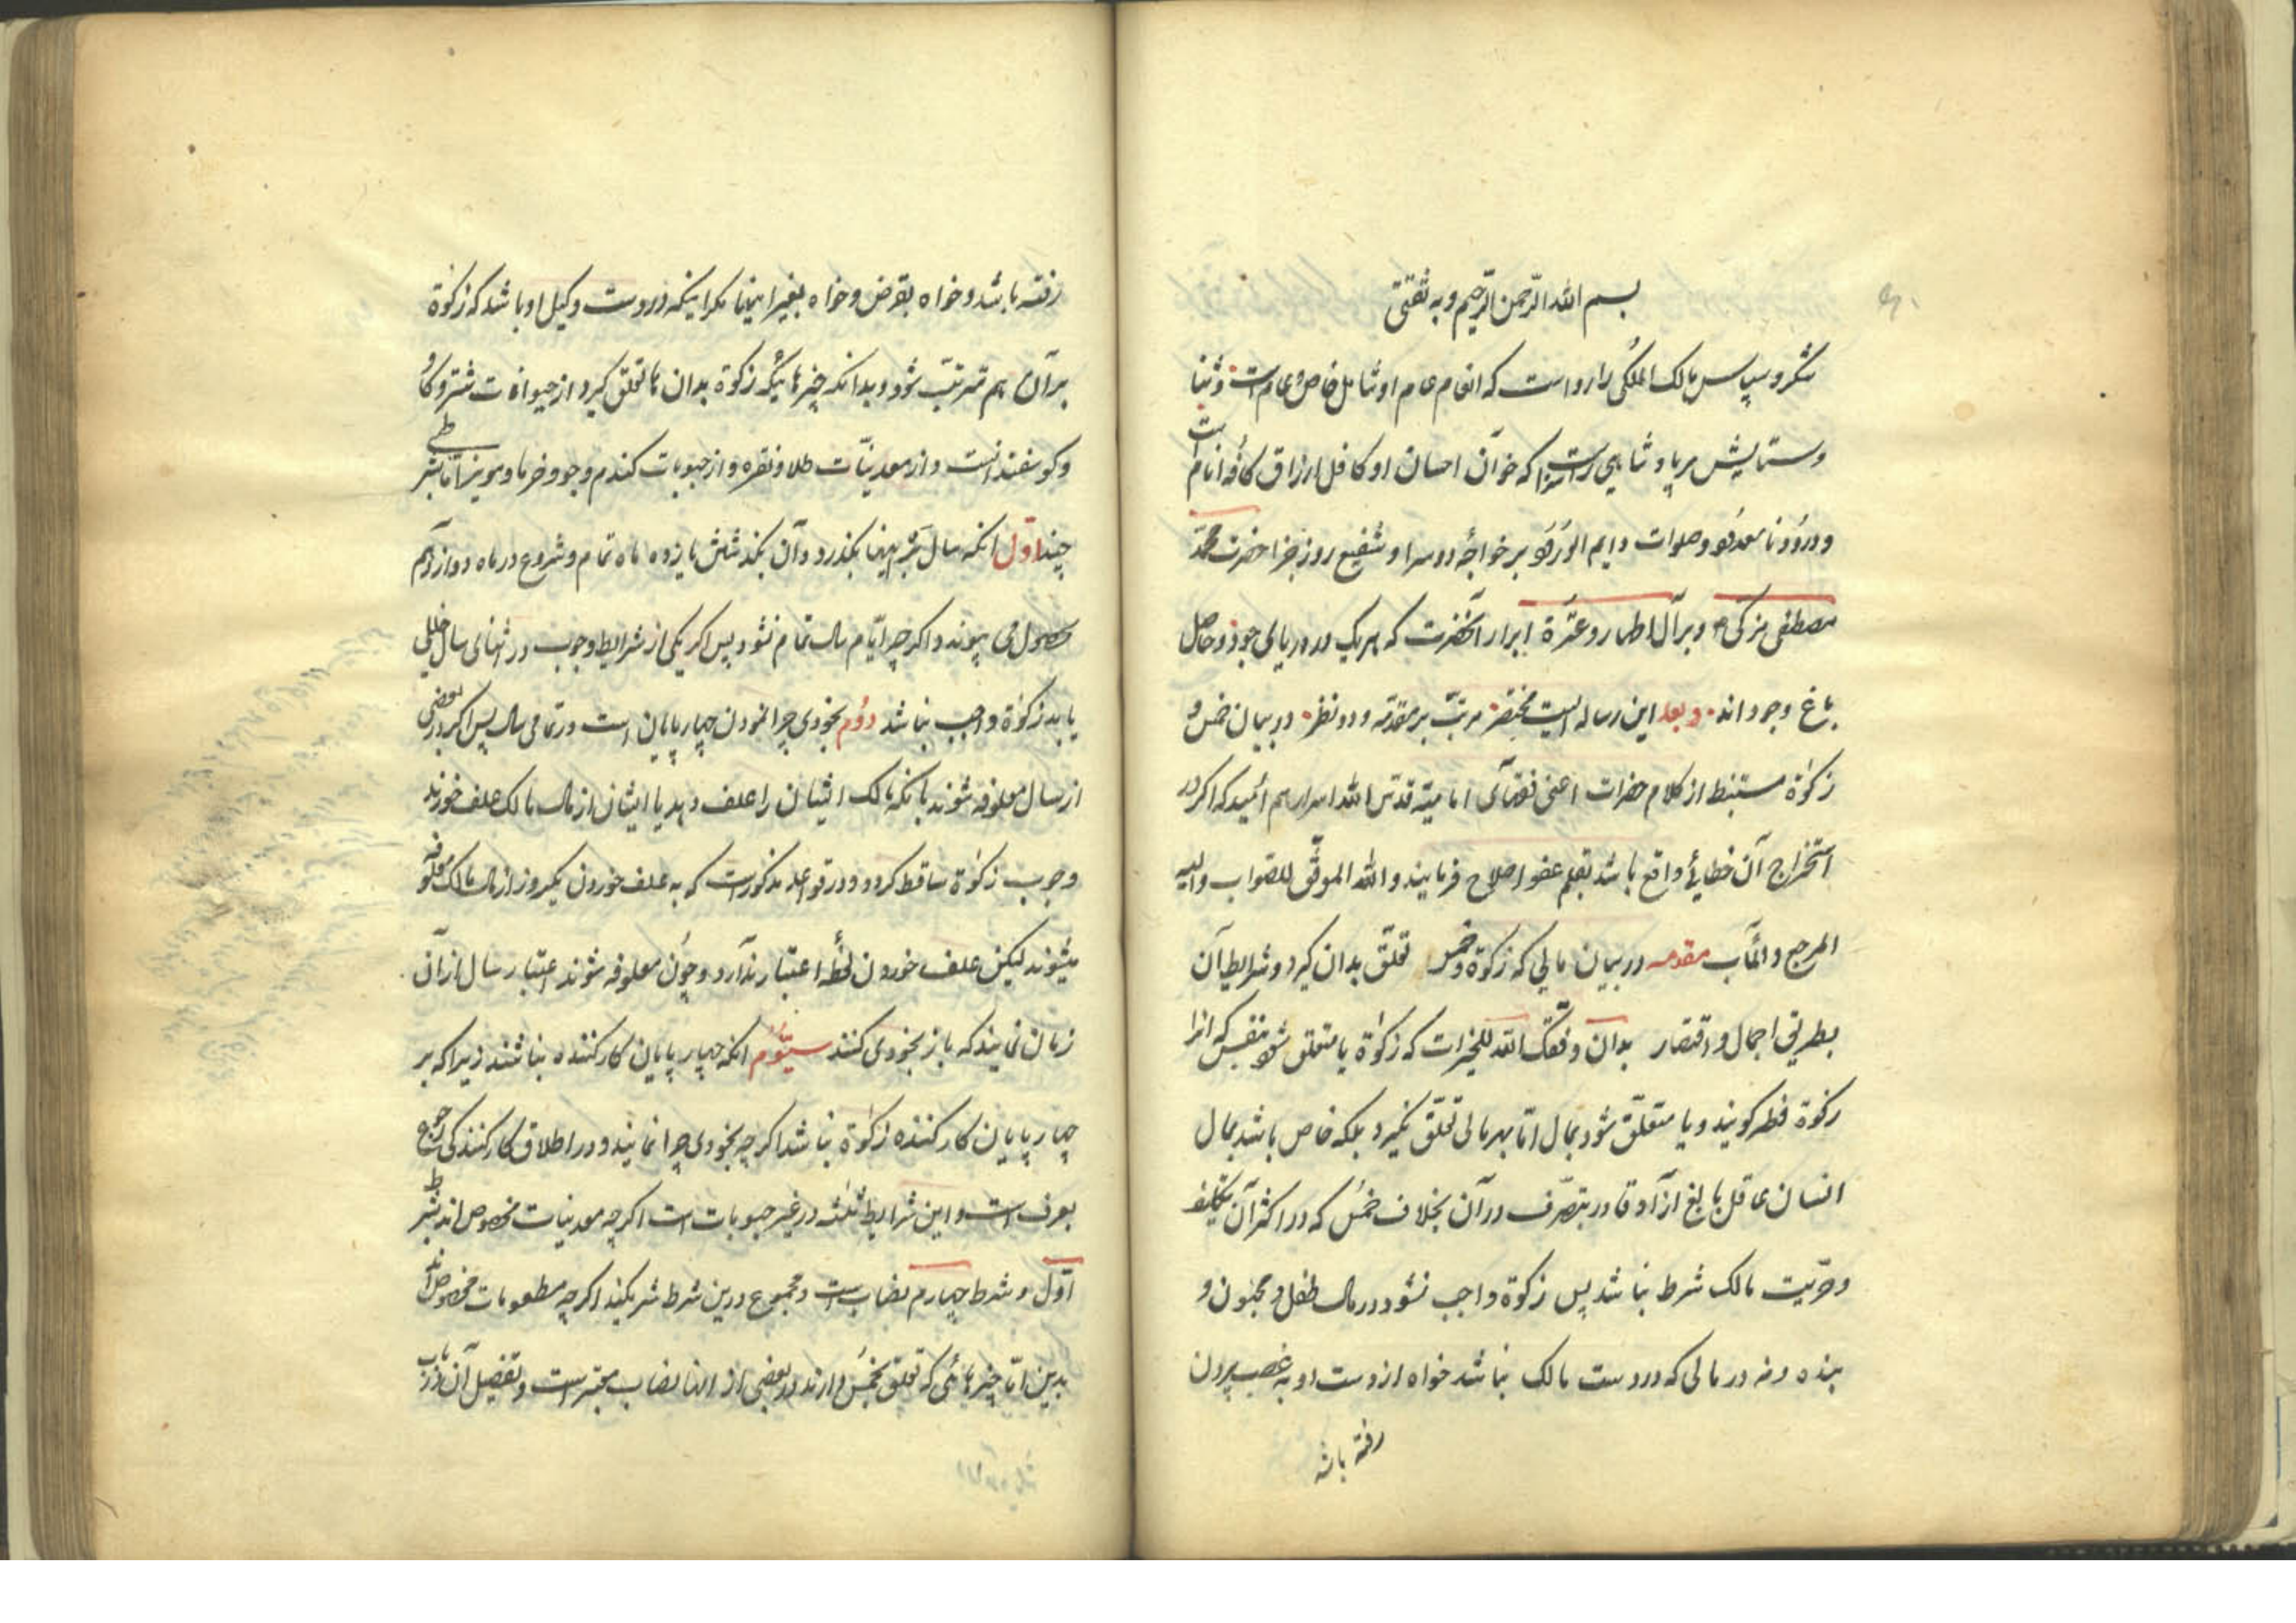 بسم الله الرحمن الرحیم وبه ثقتی
شکر و سپاس مالک الملکی را رواست که انعام عام او شامل خاص و عام است و ثنا
و ستایش مر پادشاهی را سزاست که خوان احسان او کافل ارزاق کافهٔ انام است
و درود نامعدود و صلوات دایم الورود بر خواجهٔ دو سرا و شفیع روز جزا حضرت محمد
مصطفی مزکی و بر آل اطهار و عترة ابرار آنحضرت که هر یک در دریای جود و حاصل
باغ وجود اند وبعد این رساله ایست مختصر مرتب بر مقدمه و دو نظر در بیان خمس و
زکوة مستنبط از کلام حضرات اعنی فقهای امامیه قدس الله اسرارهم امید که اگر در
استخراج آن خطائی واقع باشد بقلم عفو اصلاح فرمایند والله الموفق للصواب والیه
المرجع والمآب مقدمه در بیان مالی که زکوة و خمس تعلق بدان گیرد و شرایط آن
بطریق اجمال و اقتصار بدان وفقک الله للخیرات که زکوة یا متعلق شود بنفس که انرا
زکوة فطر گویند و یا متعلق شود بمال اما بهر مالی تعلق نگیرد بلکه خاص باشد بمال
انسان عاقل بالغ ازاد قادر بتصرف در آن بخلاف خمس که در اکثر آن تکلیف
و حریت مالک شرط نباشد پس زکوة واجب نشود در مال طفل و مجنون و
بنده و نه در مالی که در دست مالک نباشد خواه از دست او به غصب بیرون
رفته باشد
رفته باشد و خواه بقرض و خواه بغیر اینها مگر اینکه در دست وکیل او باشد که زکوة
بر آن هم مترتب شود و بدانکه چیزهائیکه زکوة بدان ها تعلق گیرد از حیوانات شتر و گاو
و گوسفند است و از معدنیات طلا و نقره و از حبوبات گندم و جو و خرما و مویز اما بشرطی
چند اول انکه سال بر اینها بگذرد و آن بگذشتن یازده ماه تمام و شروع در ماه دوازدهم
بحصول می پیوندد اگر چه ایام سال تمام نشود پس اگر یکی از شرایط وجوب در اثنای سال خللی
یابد زکوة واجب نباشد دوم بخودی چرا نمودن چهارپایان است در تمامی سال پس اگر در بعضی
از سال معلوفه شوند بانکه مالک ایشان را علف دهد یا ایشان از مال مالک علف خورند
وجوب زکوة ساقط گردد و در قواعد مذکور است که به علف خوردن یکروز از مال مالک معلوفه
میشوند لیکن علف خوردن لحظه اعتبار ندارد و چون معلوفه شوند اعتبار سال از آن
زمان نمایند که باز بخودی کنند سیوم انکه چهارپایان کارکننده نباشند زیرا که بر
چهارپایان کارکننده زکوة نباشد اگر چه بخودی چرا نمایند و در اطلاق کارکنندگی رجوع
بعرف است و این شرایط ثلثه در غیر حبوبات است اگر چه معدنیات مخصوص اند بشرط
اول و شرط چهارم نصاب است و مجموع درین شرط شریکند اگر چه مطعومات مخصوص اند
بدین اما چیزهائی که تعلق بخمس دارند در بعضی از انها نصاب معتبر است و تفصیل آن در باب